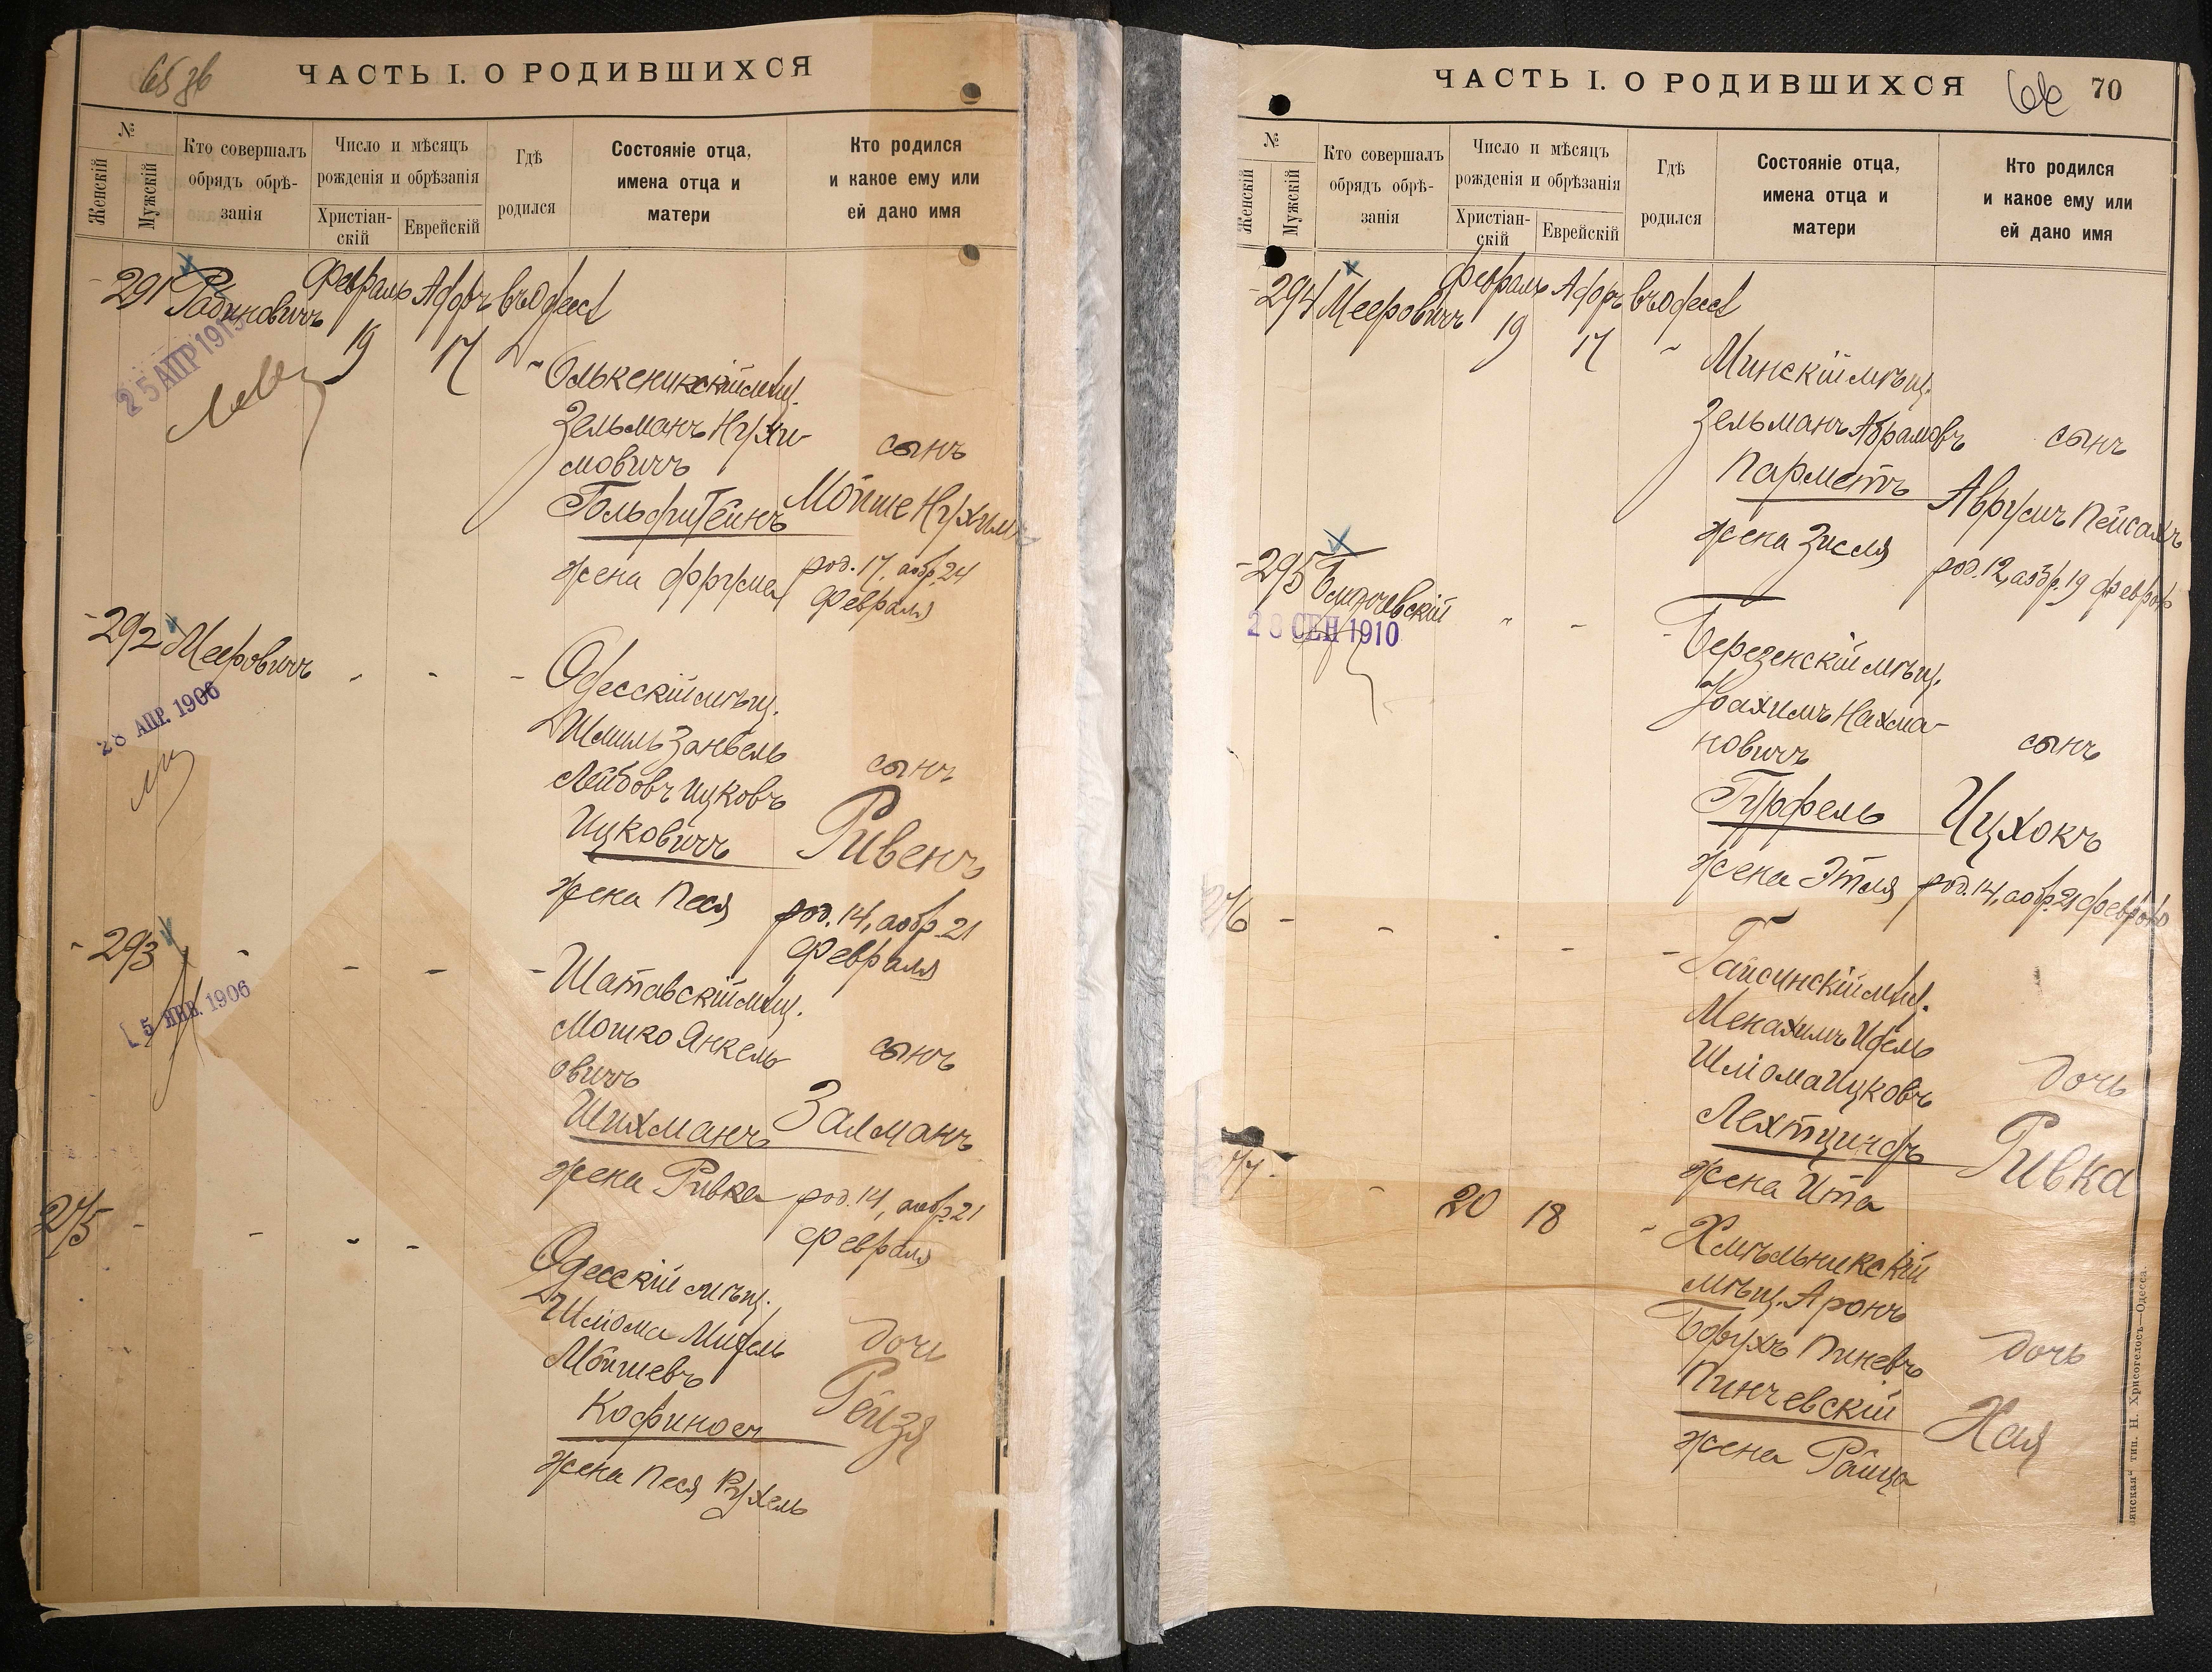 65 зв
ЧАСТЬ I. О РОДИВШИХСЯ
№
Женскій
Мужскій
Кто совершалъ
обрядъ обрѣ-
занія
Число и мѣсяцъ
рожденія и обрѣзанія
Христіан-
скій
Еврейскій
Гдѣ
родился
Состояніе отца,
имена отца и
матери
Кто родился
и какое ему или
ей дано имя
291 Рабиновичъ Февраль Адаръ въ Одессѣ
19 17
25 АПР 191
Олькеникскій мѣщ.
Зельманъ Нухи-
мовичъ
Гольдштейнъ
жена Фрума
сынъ
Мойше Нухимъ
род. 17, аобр. 24
февраля
292 Мееровичъ
28 АПР. 1906
Одесскій мѣщ.
Шмиль Занвель
Лейбовъ Ицковъ
Ицковичъ
жена Песя
сынъ
Рувенъ
род. 14, аобр. 21
февраля
293
5 ЯНВ. 1906
Шатавскій мѣщ.
Мошко Янкель
овичъ
Шихманъ
жена Ривка
сынъ
Залманъ
род. 14, аобр. 21
февраля
275
Одесскій мѣщ.
Шліома
Мойшевъ
Кофинося
жена Песя Рухель
дочь
Рейзя
ЧАСТЬ I. О РОДИВШИХСЯ
66 70
№
Женскій
Мужскій
Кто совершалъ
обрядъ обрѣ-
занія
Число и мѣсяцъ
рожденія и обрѣзанія
Христіан-
скій
Еврейскій
Гдѣ
родился
Состояніе отца,
имена отца и
матери
Кто родился
и какое ему или
ей дано имя
294 Мееровичъ Февраль Адаръ въ Одессѣ
19 17
Минскій мѣщ.
Зельманъ Абрамовъ
Парметъ
жена Зисля
сынъ
Аврумъ Пейсахъ
род. 12, аобр. 19 февраля
295
28 СЕН 1910
Березенскій мѣщ.
Іоахимъ Нахма-
новичъ
Гурфель
жена Этля
сынъ
Ицхокъ
род. 14, аобр. 21 февраля
276
Гайсинскій мѣщ.
Менахимъ Идель
Шліома Ицковъ
Лехтциндъ
жена Ита
дочь
Ривка
277
20 18
Хмѣльникскій
мѣщ. Аронъ
Борухъ Пиневъ
Пинчевскій
жена Раица
дочь
Хая
тип. Н. Хрисогелосъ—Одесса.